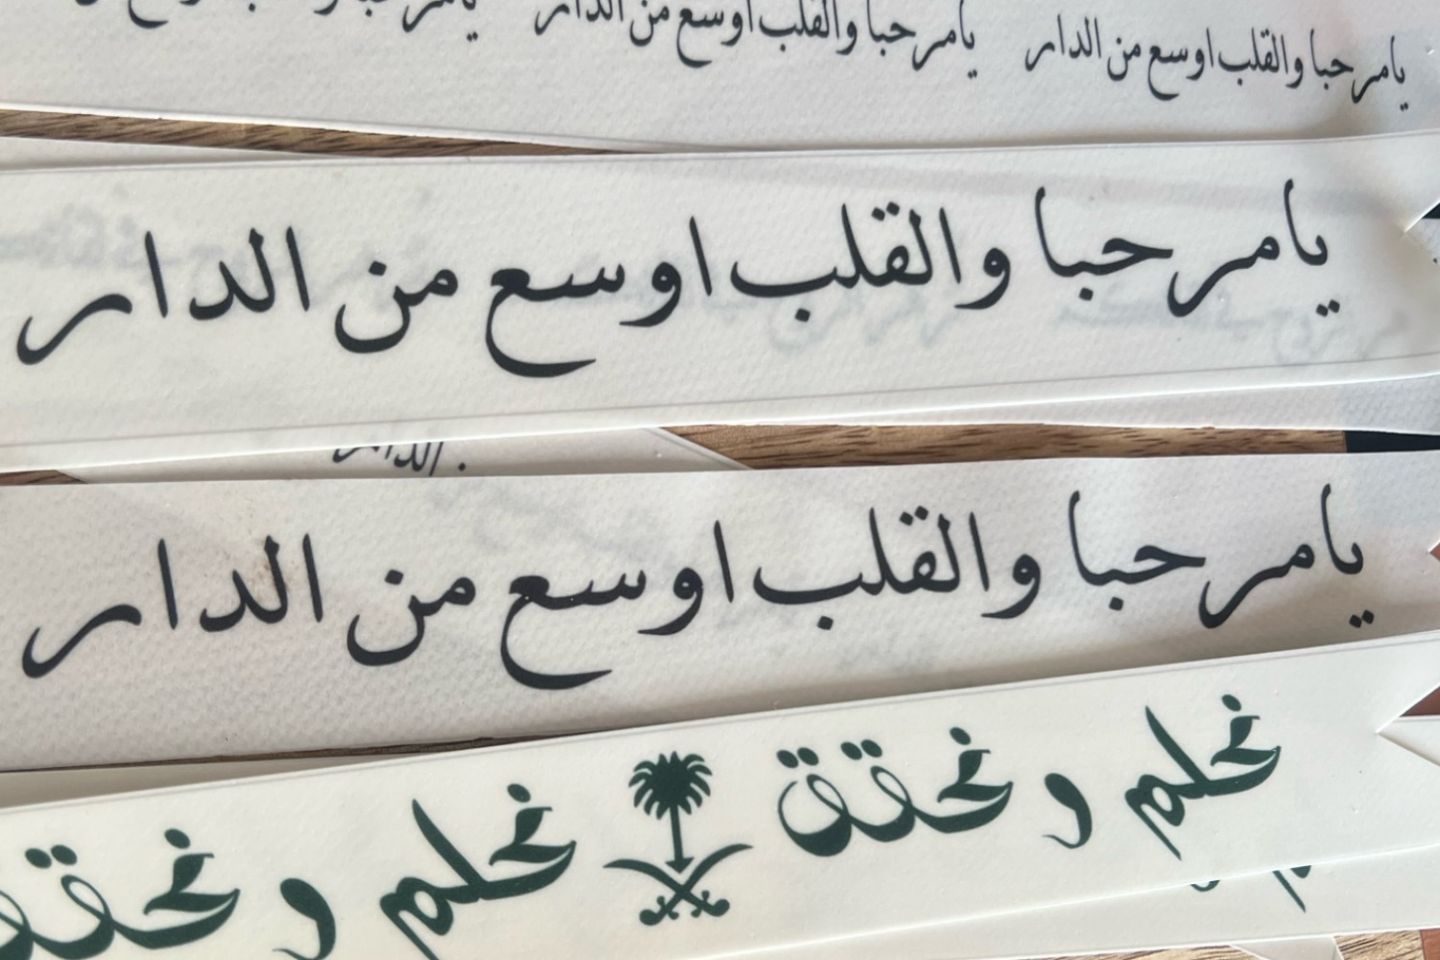 يامرحبا والقلب اوسع من الدار يامرحبا والقلب اوسع من الدار
يامرحبا والقلب اوسع من الدار
الدار
يامرحبا والقلب اوسع من الدار
نحلم ونحقق نحلم ونحقق